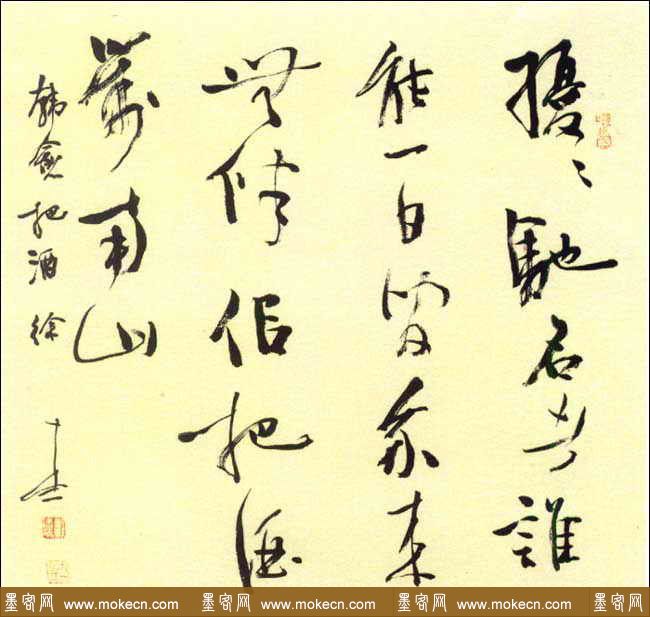 擾〻馳名者誰
能一日閒我來
無伴侣把酒
對南山
韓愈把酒 徐
墨客网 www.mokecn.com 墨客网 www.mokecn.com 墨客网 www.mokecn.com